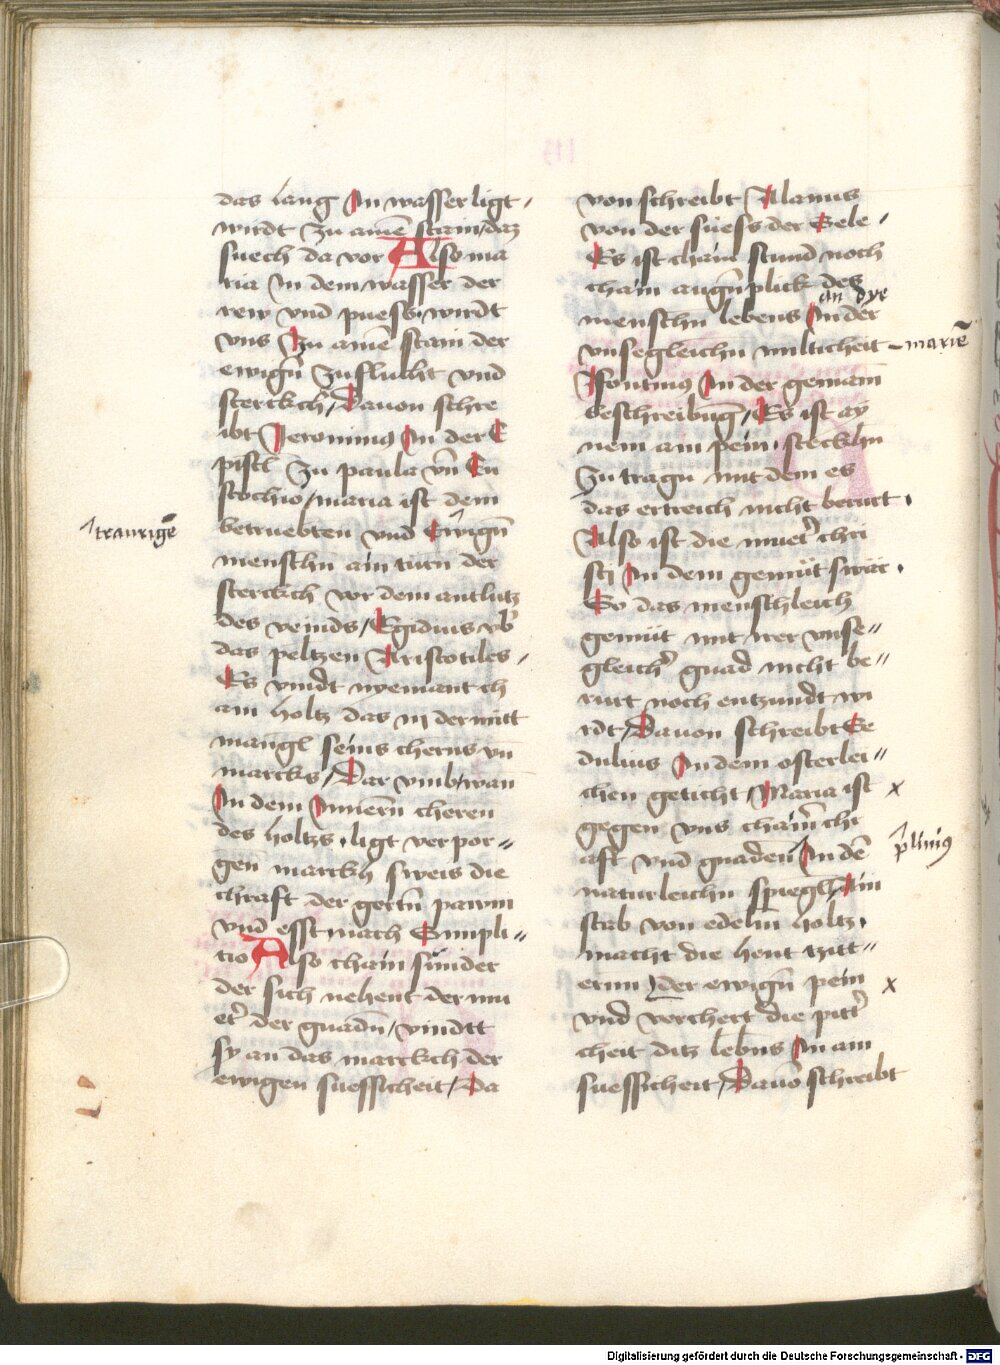 das lang In wasser ligt
wirdt zu ainē stain / daz
suech da vor Also ma
ria In dem wasser der
rew vnd puess wirdt
vns Zu ainē stain der
ewigñ Zuflucht vnd
sterckch̃ / Dauon schre
ibt Jeronimus In der E
pistl Zu paula vñ Eu
stochio / maria ist dem
betruebten vnd Ewigñ
traurigē
menschn ain turn der
sterckch vor dem antlutz
des veinds / Egidius vb̃
das peltzen Aristotiles
Es vindt nyemant ch
ain holtz das in der mitt
mangl seins cherns vn
marcks / Dar vmb wan
In dem Innerñ cheren
des holtzs ligt verpor=
gen marckh sweis die
chraft der gertñ pawm
vnd esst nach Simpli=
tio Also chain sünder
der sich nehent der mu
et̃ der gnadñ / vindtt
sy an das marckch der
ewigen suessicheit / Da
von schreibt Alanus
von der süess der Sele
Es ist chain stund noch
chain augñplick des
menschn lebens In der
an dye
vnsegleichn milticheit – mariē
Isontinus In der gemain
beschreibũg / Es ist ay
nem am pein stecklñ
Zu tragn mit dem es
das ertreich nicht berürt
Also ist die muet̃ chri
sti In dem gemüt swär
So das menschleich
gemüt mit irer vnse=
gleich̃ gnad nicht be=
rürt noch entzundt wi
rdt / Dauon schreibt Se
dulius In dem osterlei=
chen geticht / Maria ist x
gegen vns chaiñ chr
aft vnd gnadeñ In dē
plinius
naturleichn spiegl / Ain
stab von edelm holtz
macht die hent tzitt=
ernn / Der ewigñ pein x
vnd verchert die pitt̃
cheit ditz lebñs In ain
suessicheit / Dauõ schreibt
Digitalisierung gefördert durch die Deutsche Forschungsgemeinschaft - DFG